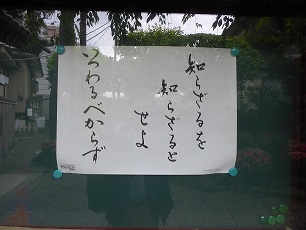 知らざるを
知らざると
せよ
いつわるべからず